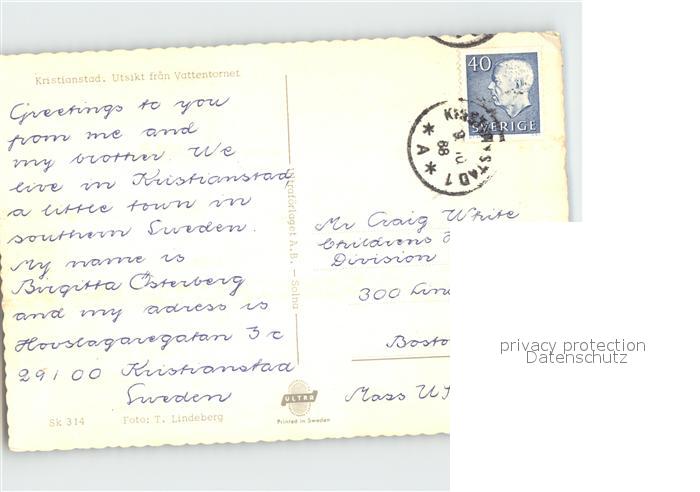 Kristianstad. Utsikt från Vattentornet
Greetings to you
from me and
my brother. We
live in Kristianstad
a little town in
southern Sweden.
My name is
Birgitta Österberg
and my adress is
Hovslagaregatan 3 c
291 00 Kristianstad
Sweden
Sk 314 Foto: T. Lindeberg
Ultraförlaget A.B. — Solna
ULTRA
Printed in Sweden
40
SVERIGE
KRISTIANSTAD 1
* A *
68
Mr Craig White
Childrens
Division
300
Mass
privacy protection
Datenschutz